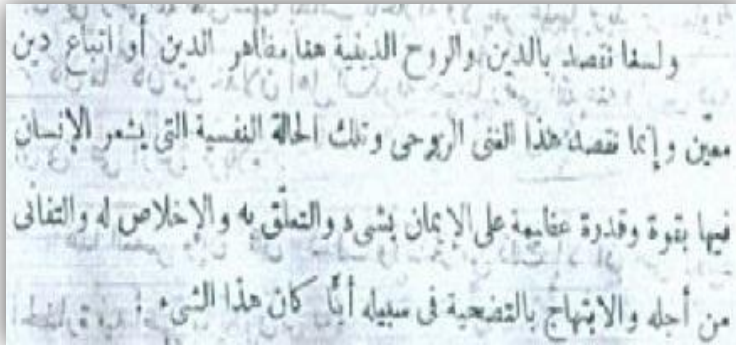 ولسنا نقصد بالدين والروح الدينية هنا مظاهر الدين أو اتباع دين
معين وإنما نقصد هذا الغنى الروحى وتلك الحالة النفسية التى يشعر الإنسان
فيها بقوة وقدرة عظيمة على الإيمان بشىء والتعلّق به والإخلاص له والتفانى
من أجله والابتهاج بالتضحية فى سبيله أيًّا كان هذا الشىء !